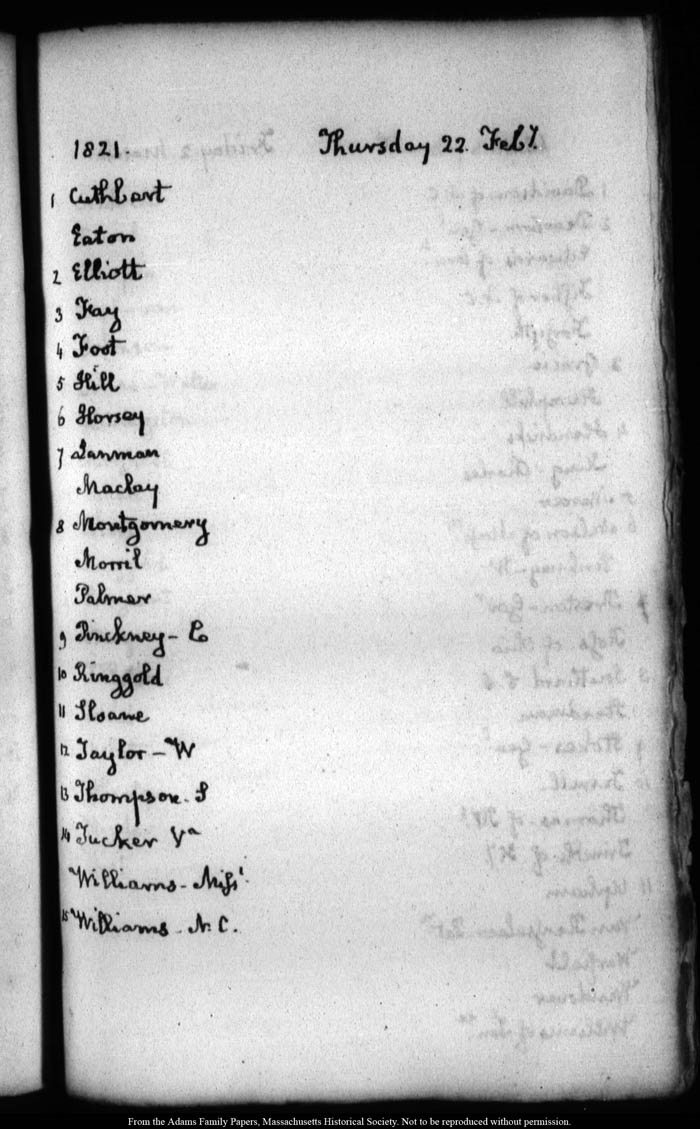 1821. Thursday 22. Feby.
1 Cuthbart
Eaton
2 Elliott
3 Fay
4 Foot
5 Hill
6 Horsey
7 Lanman
Maclay
8 Montgomery
Morril
Palmer
9 Pinckney - Co
10 Ringgold
11 Sloane
12 Taylor - W
13 Thompson. S
14 Tucker Va
Williams - Missi.
15 Williams - N. C.
From the Adams Family Papers, Massachusetts Historical Society. Not to be reproduced without permission.